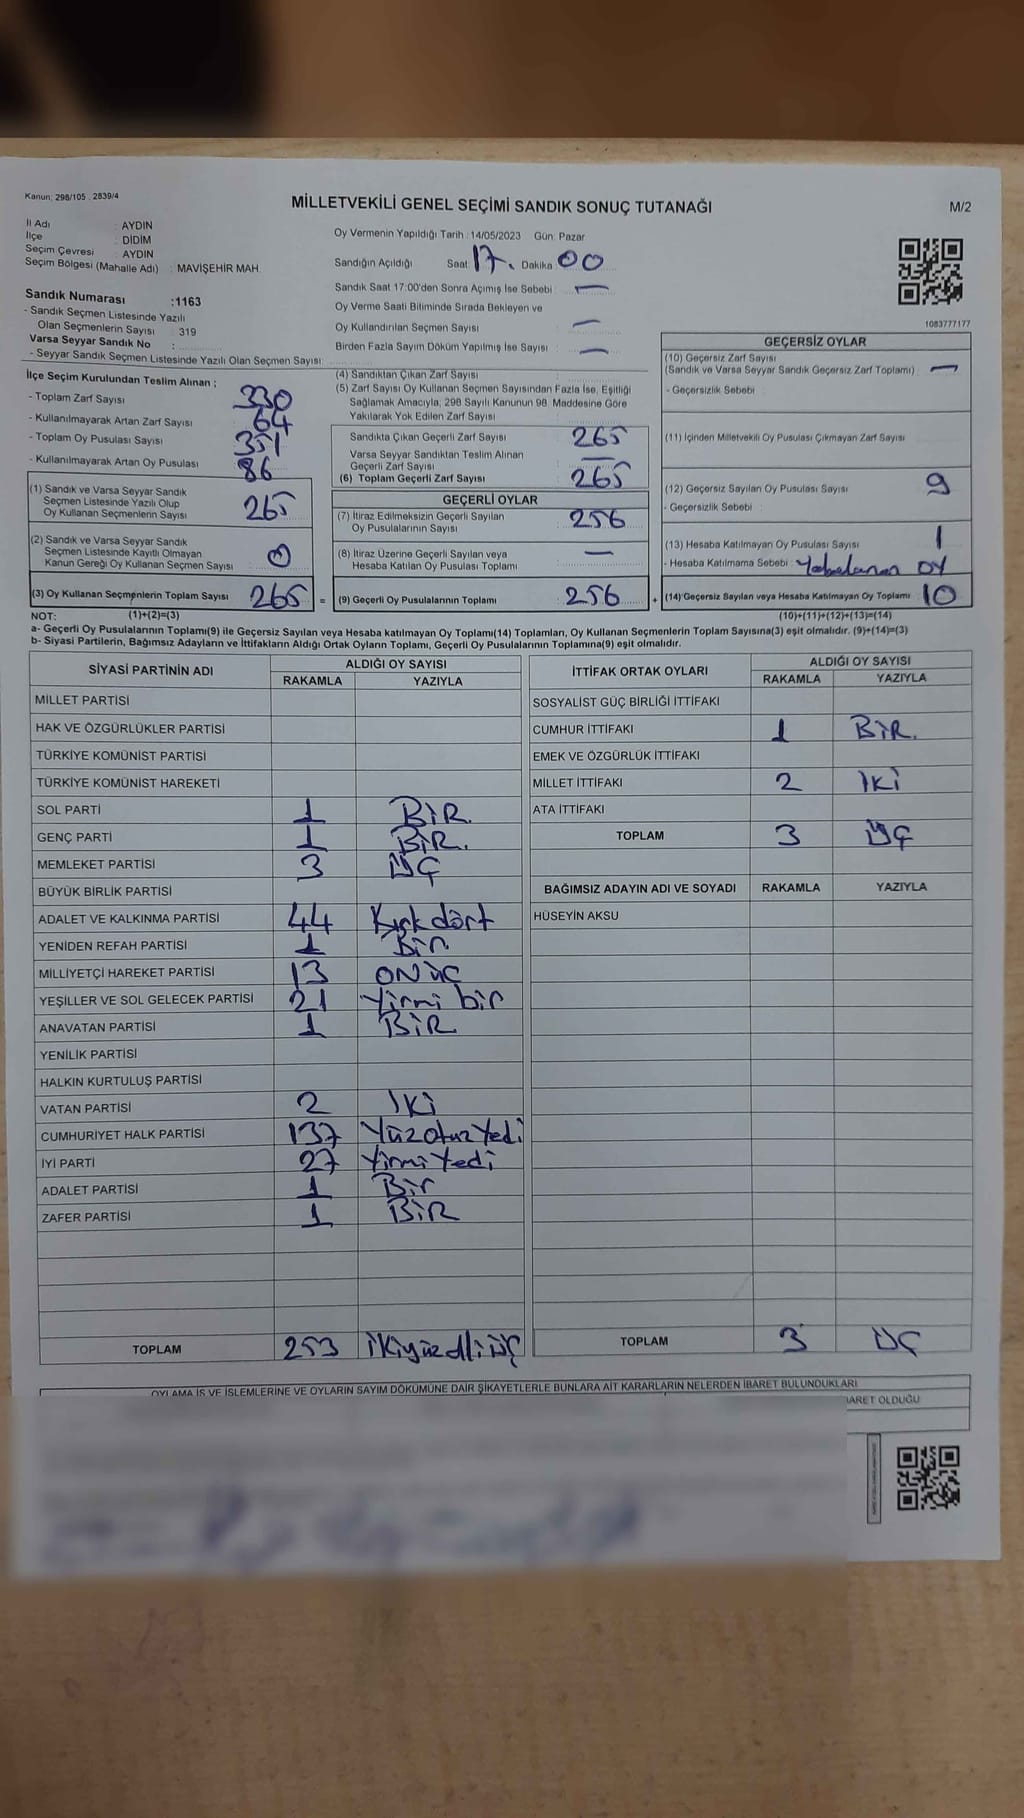 Kanun; 298/105 . 2839/4
MİLLETVEKİLİ GENEL SEÇİMİ SANDIK SONUÇ TUTANAĞI
M/2
İl Adı : AYDIN
İlçe : DİDİM
Seçim Çevresi : AYDIN
Seçim Bölgesi (Mahalle Adı) : MAVİŞEHİR MAH.
Sandık Numarası :1163
- Sandık Seçmen Listesinde Yazılı
Olan Seçmenlerin Sayısı : 319
Varsa Seyyar Sandık No :
- Seyyar Sandık Seçmen Listesinde Yazılı Olan Seçmen Sayısı:
Oy Vermenin Yapıldığı Tarih : 14/05/2023 Gün: Pazar
Sandığın Açıldığı Saat 17. Dakika 00
Sandık Saat 17:00'den Sonra Açımış İse Sebebi : —
Oy Verme Saati Bitiminde Sırada Bekleyen ve
Oy Kullandırılan Seçmen Sayısı —
Birden Fazla Sayım Döküm Yapılmış İse Sayısı —
1083777177
İlçe Seçim Kurulundan Teslim Alınan ;
- Toplam Zarf Sayısı 330
- Kullanılmayarak Artan Zarf Sayısı 64
- Toplam Oy Pusulası Sayısı 351
- Kullanılmayarak Artan Oy Pusulası 86
(1) Sandık ve Varsa Seyyar Sandık
Seçmen Listesinde Yazılı Olup
Oy Kullanan Seçmenlerin Sayısı 265
(2) Sandık ve Varsa Seyyar Sandık
Seçmen Listesinde Kayıtlı Olmayan
Kanun Gereği Oy Kullanan Seçmen Sayısı 0
(3) Oy Kullanan Seçmenlerin Toplam Sayısı 265 =
(4) Sandıktan Çıkan Zarf Sayısı
(5) Zarf Sayısı Oy Kullanan Seçmen Sayısından Fazla İse, Eşitliği
Sağlamak Amacıyla, 298 Sayılı Kanunun 98. Maddesine Göre
Yakılarak Yok Edilen Zarf Sayısı
Sandıkta Çıkan Geçerli Zarf Sayısı 265
Varsa Seyyar Sandıktan Teslim Alınan
Geçerli Zarf Sayısı —
(6) Toplam Geçerli Zarf Sayısı 265
GEÇERLİ OYLAR
(7) İtiraz Edilmeksizin Geçerli Sayılan
Oy Pusulalarının Sayısı 256
(8) İtiraz Üzerine Geçerli Sayılan veya
Hesaba Katılan Oy Pusulası Toplamı —
(9) Geçerli Oy Pusulalarının Toplamı 256 +
GEÇERSİZ OYLAR
(10) Geçersiz Zarf Sayısı
(Sandık ve Varsa Seyyar Sandık Geçersiz Zarf Toplamı) —
- Geçersizlik Sebebi :
(11) İçinden Milletvekili Oy Pusulası Çıkmayan Zarf Sayısı
(12) Geçersiz Sayılan Oy Pusulası Sayısı 9
- Geçersizlik Sebebi :
(13) Hesaba Katılmayan Oy Pusulası Sayısı 1
- Hesaba Katılmama Sebebi : OY
(14) Geçersiz Sayılan veya Hesaba Katılmayan Oy Toplamı 10
NOT: (1)+(2)=(3) (10)+(11)+(12)+(13)=(14)
a- Geçerli Oy Pusulalarının Toplamı(9) ile Geçersiz Sayılan veya Hesaba katılmayan Oy Toplamı(14) Toplamları, Oy Kullanan Seçmenlerin Toplam Sayısına(3) eşit olmalıdır. (9)+(14)=(3)
b- Siyasi Partilerin, Bağımsız Adayların ve İttifakların Aldığı Ortak Oyların Toplamı, Geçerli Oy Pusulalarının Toplamına(9) eşit olmalıdır.
SİYASİ PARTİNİN ADI ALDIĞI OY SAYISI
RAKAMLA YAZIYLA
MİLLET PARTİSİ
HAK VE ÖZGÜRLÜKLER PARTİSİ
TÜRKİYE KOMÜNİST PARTİSİ
TÜRKİYE KOMÜNİST HAREKETİ
SOL PARTİ 1 BİR.
GENÇ PARTİ 1 BİR.
MEMLEKET PARTİSİ 3 ÜÇ
BÜYÜK BİRLİK PARTİSİ
ADALET VE KALKINMA PARTİSİ 44 Kırk dört
YENİDEN REFAH PARTİSİ 1 Bir
MİLLİYETÇİ HAREKET PARTİSİ 13 ONÜÇ
YEŞİLLER VE SOL GELECEK PARTİSİ 21 Yirmi bir
ANAVATAN PARTİSİ 1 BİR
YENİLİK PARTİSİ
HALKIN KURTULUŞ PARTİSİ
VATAN PARTİSİ 2 İKİ
CUMHURİYET HALK PARTİSİ 137 Yüzotuzyedi
İYİ PARTİ 27 Yirmiyedi
ADALET PARTİSİ 1 Bir
ZAFER PARTİSİ 1 BİR
TOPLAM 253 İkiyüzelliüç
İTTİFAK ORTAK OYLARI ALDIĞI OY SAYISI
RAKAMLA YAZIYLA
SOSYALİST GÜÇ BİRLİĞİ İTTİFAKI
CUMHUR İTTİFAKI 1 BİR.
EMEK VE ÖZGÜRLÜK İTTİFAKI
MİLLET İTTİFAKI 2 İKİ
ATA İTTİFAKI
TOPLAM 3 ÜÇ
BAĞIMSIZ ADAYIN ADI VE SOYADI RAKAMLA YAZIYLA
HÜSEYİN AKSU
TOPLAM 3 ÜÇ
OYLAMA İŞ VE İŞLEMLERİNE VE OYLARIN SAYIM DÖKÜMÜNE DAİR ŞİKAYETLERLE BUNLARA AİT KARARLARIN NELERDEN İBARET BULUNDUKLARI
İBARET OLDUĞU